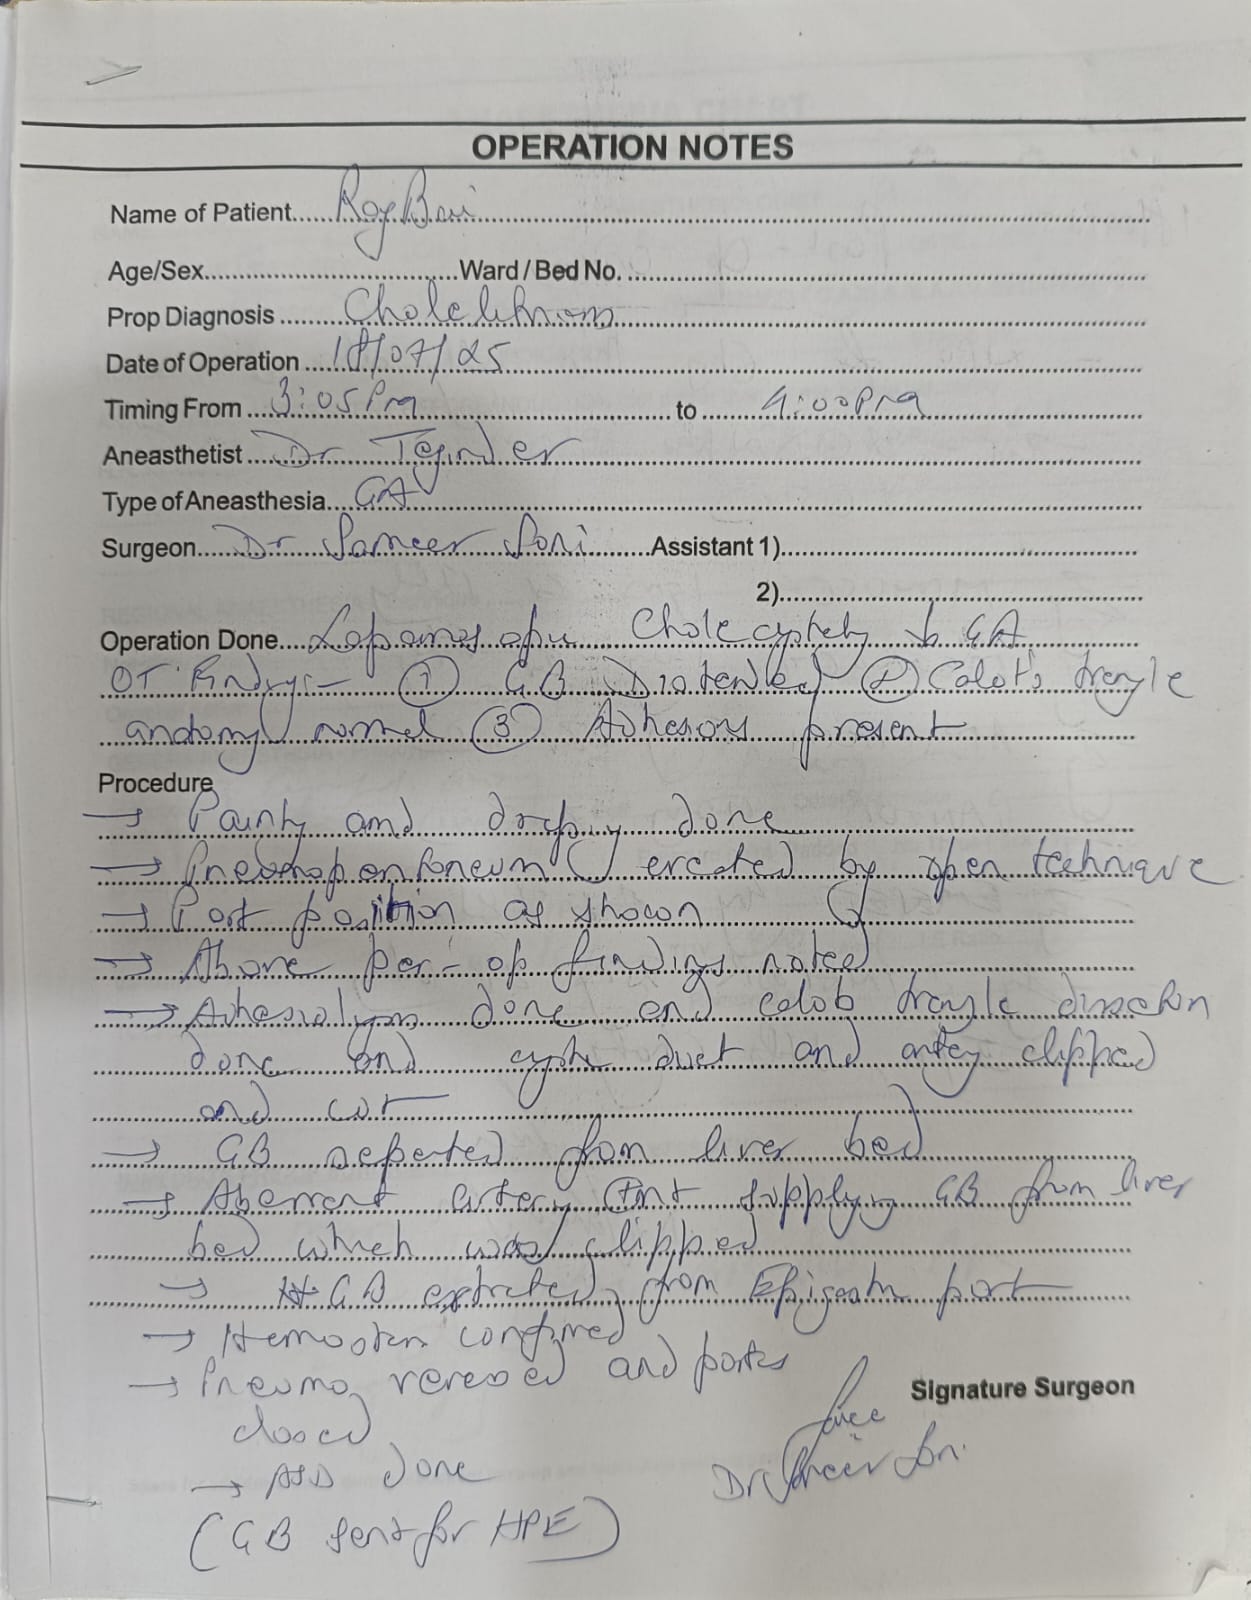 OPERATION NOTES
Name of Patient......
Age/Sex..................................Ward / Bed No. ........
Prop Diagnosis ...... Cholelithiasis
Date of Operation .... 18/07/25
Timing From .... 3:05 Pm .... to .... 4:00 Pm
Aneasthetist .... Dr Tejinder
Type of Aneasthesia.... GA
Surgeon..... Dr Sameer Soni ....... Assistant 1)........
2)........
Operation Done.... Laparoscopic Cholecystectomy GA
OT Findings:- ① GB Distended ② Calot's triangle
anatomy normal ③ Adhesions present
Procedure
→ Painting and draping done
→ Pneumoperitoneum created by open technique
→ Port position as shown
→ Above per-op findings noted
→ Adhesiolysis done and calots triangle dissection
done and cystic duct and artery clipped
and cut
→ GB seperated from liver bed
→ Aberrant artery supplying GB from liver
bed which was clipped
→ GB extracted from Epigastric port
→ Hemostasis confirmed
→ Pneumo reversed and ports
closed
Signature Surgeon
→ ASD done
Dr Sameer Soni
(GB sent for HPE)